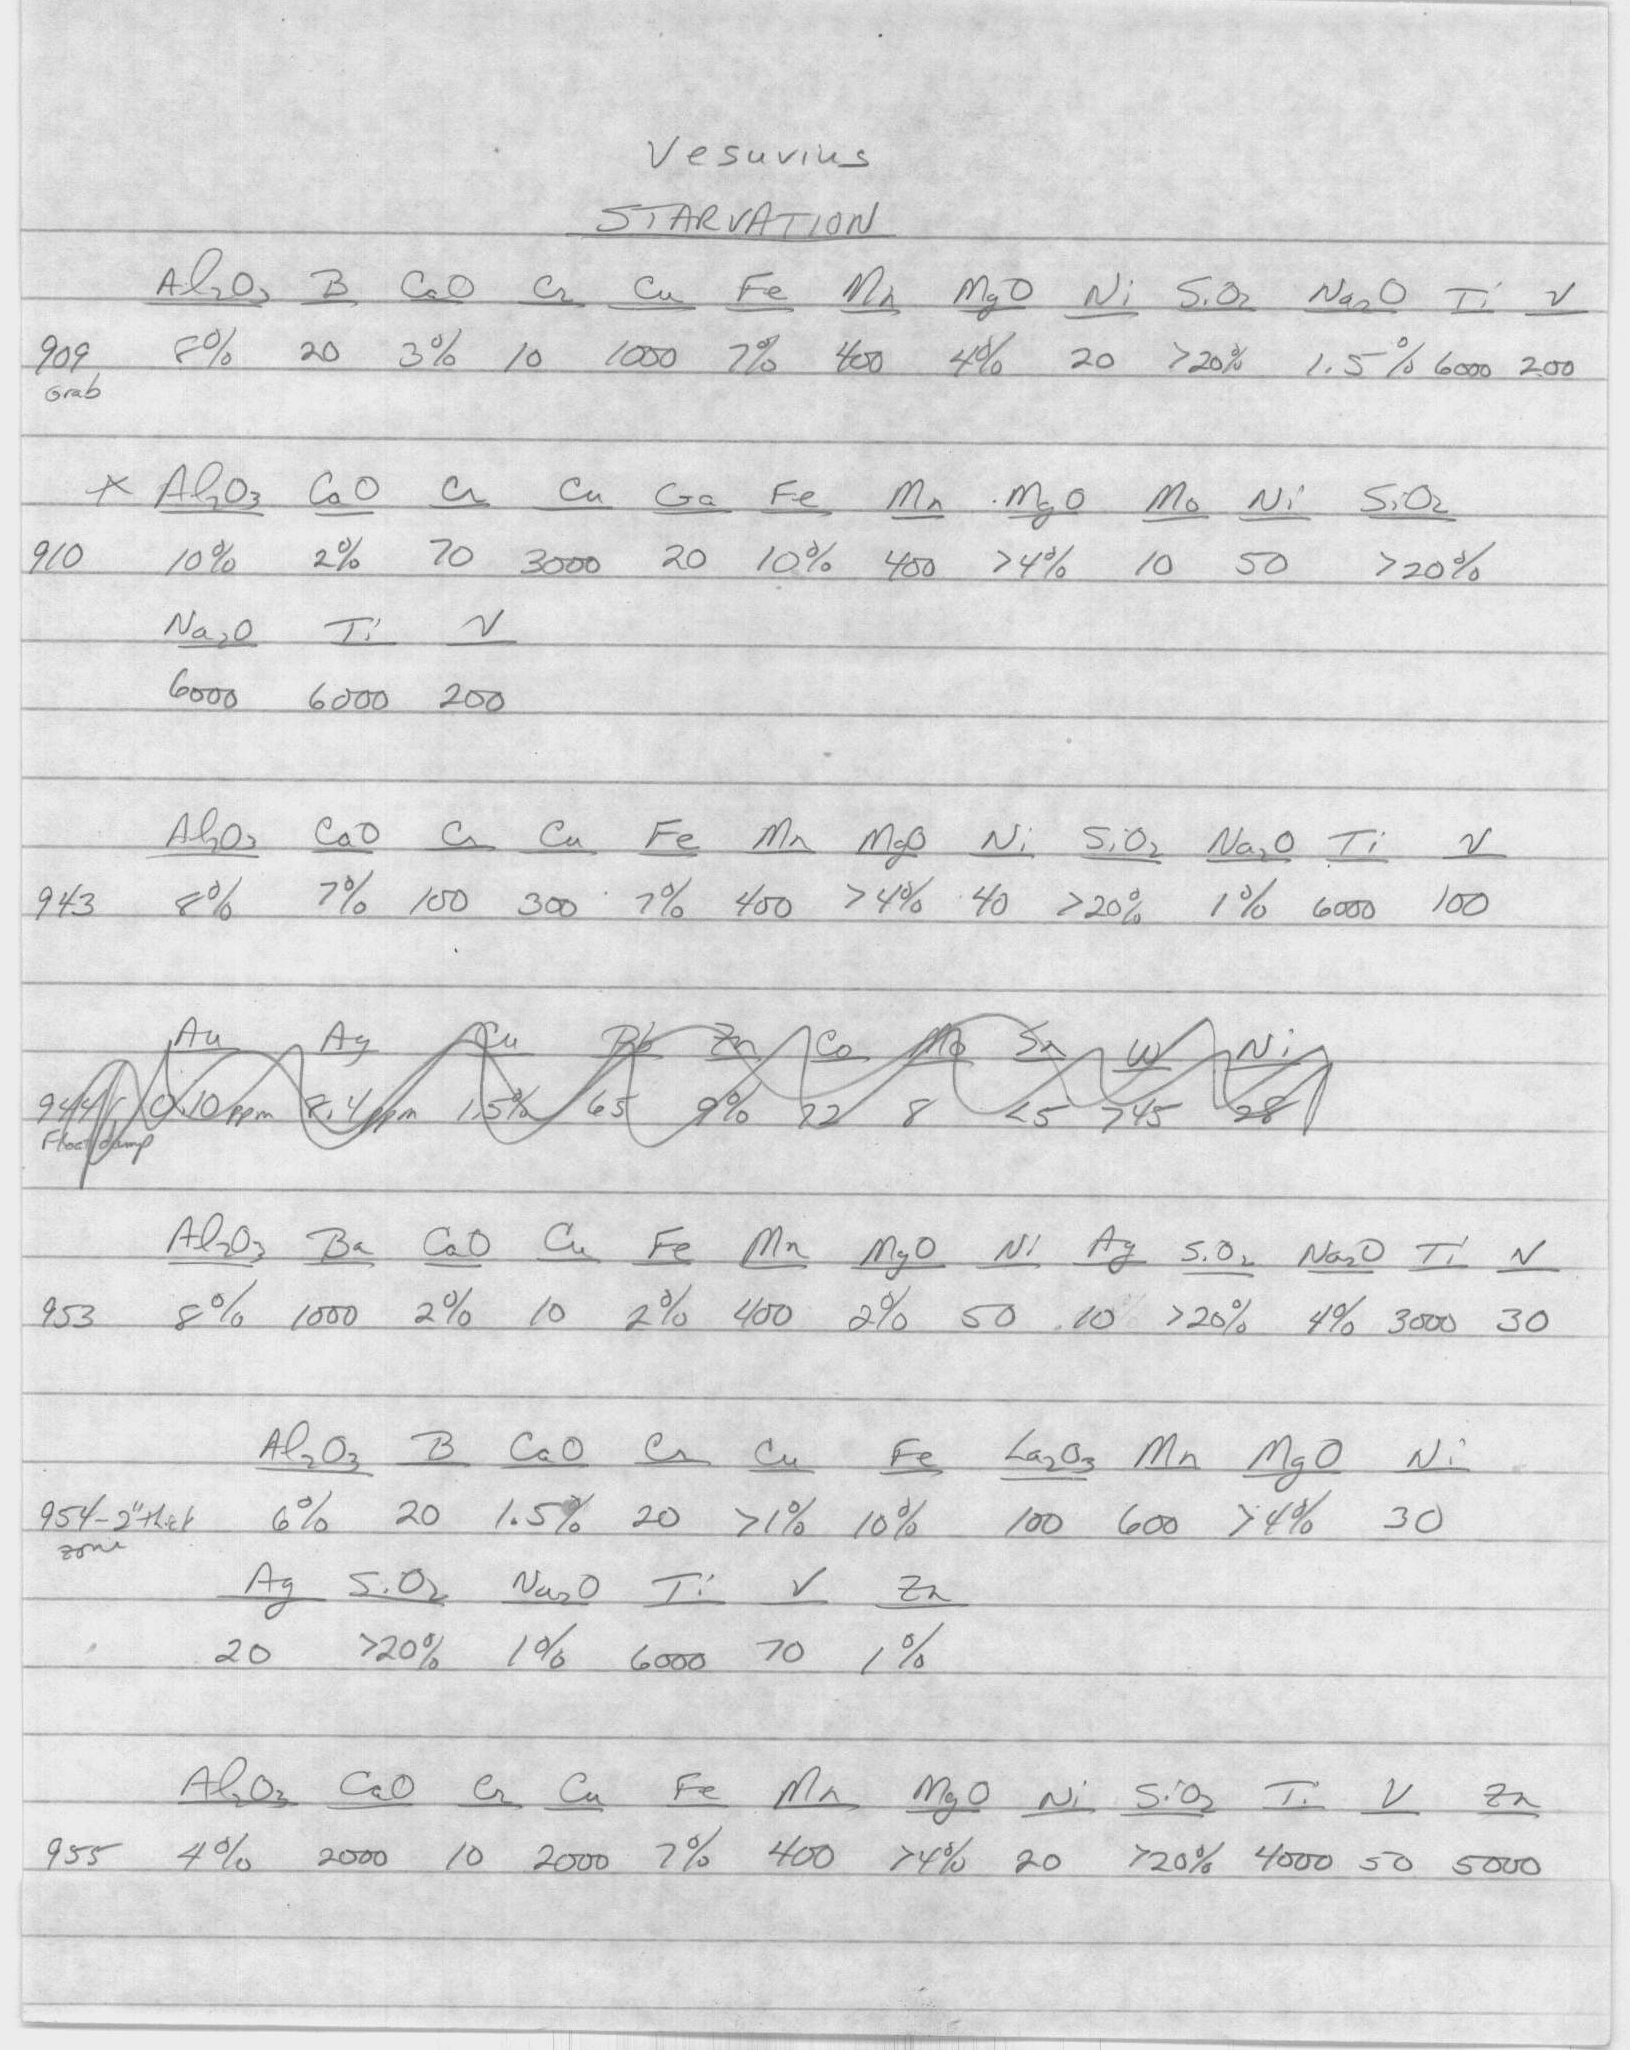 Vesuvius
STARVATION
Al2O3 B CaO Cr Cu Fe Mn MgO Ni SiO2 Na2O Ti V
909 8% 20 3% 10 1000 7% 400 4% 20 >20% 1.5% 6000 200
Grab
* Al2O3 CaO Cr Cu Ga Fe Mn MgO Mo Ni SiO2
910 10% 2% 70 3000 20 10% 400 >4% 10 50 >20%
Na2O Ti V
6000 6000 200
Al2O3 CaO Cr Cu Fe Mn MgO Ni SiO2 Na2O Ti V
943 8% 7% 100 300 7% 400 >4% 40 >20% 1% 6000 100
Au Ag Cu Pb Zn Co Mo Sn W Ni
944 0.10ppm 8.4ppm 1.5% 65 9% 22 8 <5 >45 28
Float dump
Al2O3 Ba CaO Cu Fe Mn MgO Ni Ag SiO2 Na2O Ti V
953 8% 1000 2% 10 2% 400 2% 50 10 >20% 4% 3000 30
Al2O3 B CaO Cr Cu Fe La2O3 Mn MgO Ni
954-2" thick 6% 20 1.5% 20 >1% 10% 100 600 >4% 30
zone
Ag SiO2 Na2O Ti V Zn
20 >20% 1% 6000 70 1%
Al2O3 CaO Cr Cu Fe Mn MgO Ni SiO2 Ti V Zn
955 4% 2000 10 2000 7% 400 >4% 20 >20% 4000 50 5000